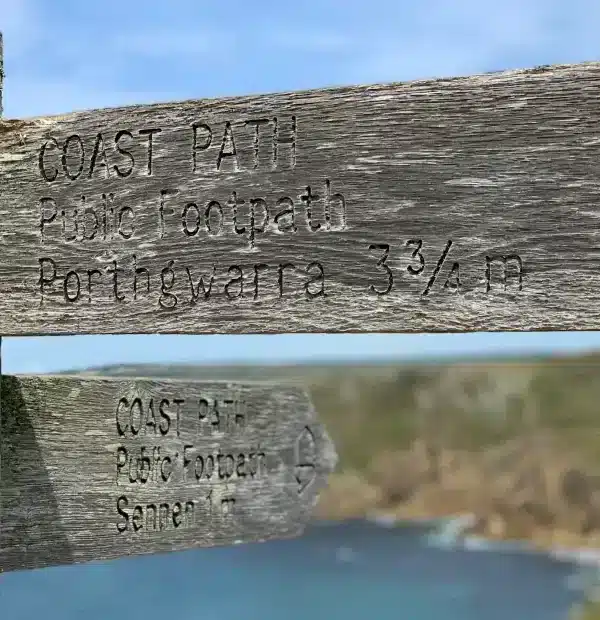 COAST PATH
Public Footpath
Porthgwarra 3 3/4 m
COAST PATH
Public Footpath
Sennen 1 m